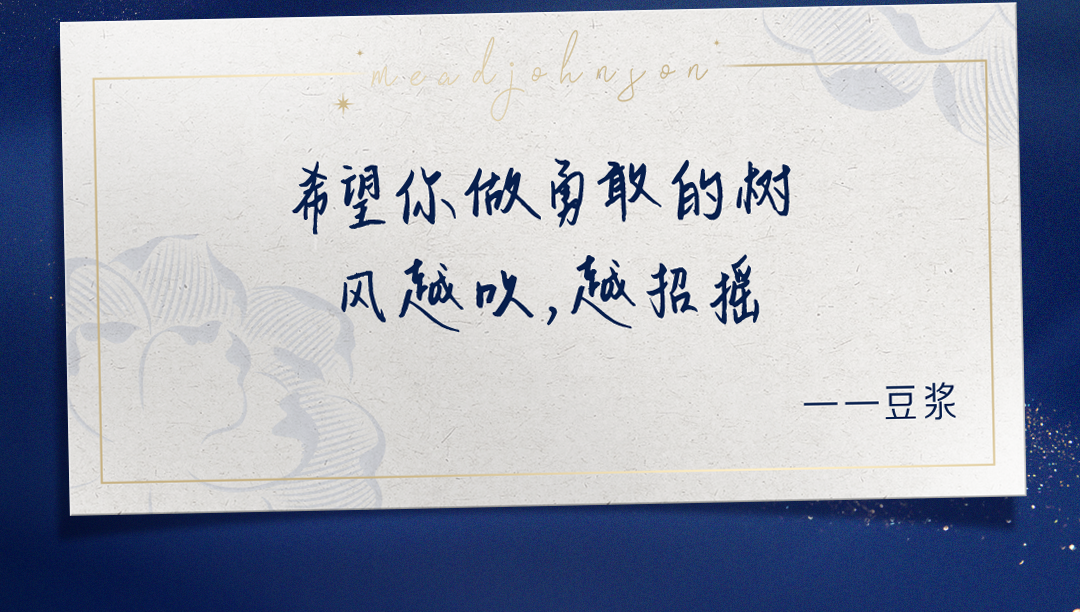 meadjohnson
希望你做勇敢的树
风越吹,越招摇
——豆浆